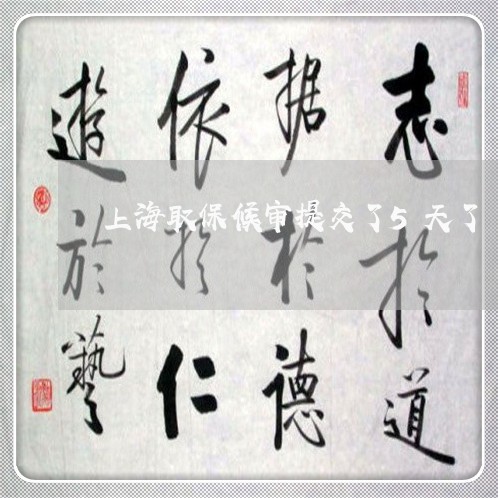 志於道
据於德
依於仁
遊於藝
上海取保候审提交了5天了